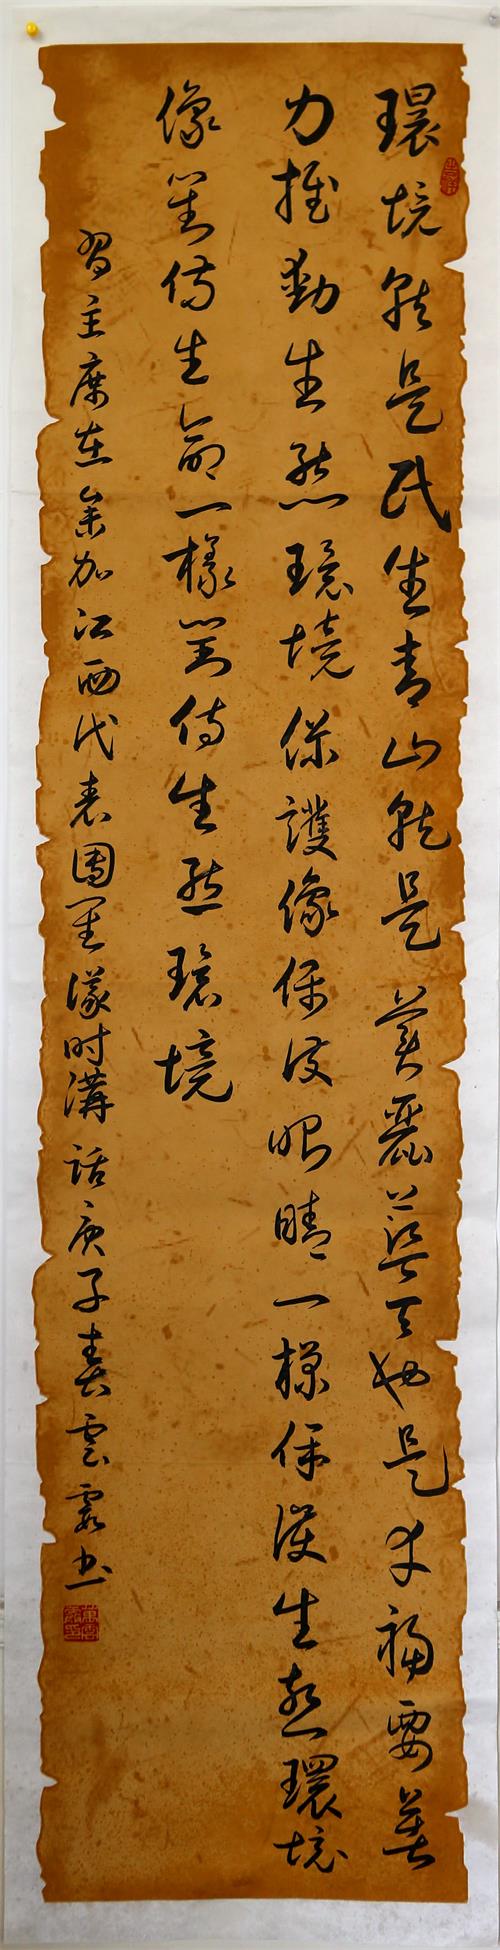 環境就是民生青山就是美麗藍天也是幸福要著
力推動生態環境保護像保護眼睛一樣保護生態環境
像對待生命一樣對待生態環境
習主席在參加江西代表團審議时講話庚子春雲霞书